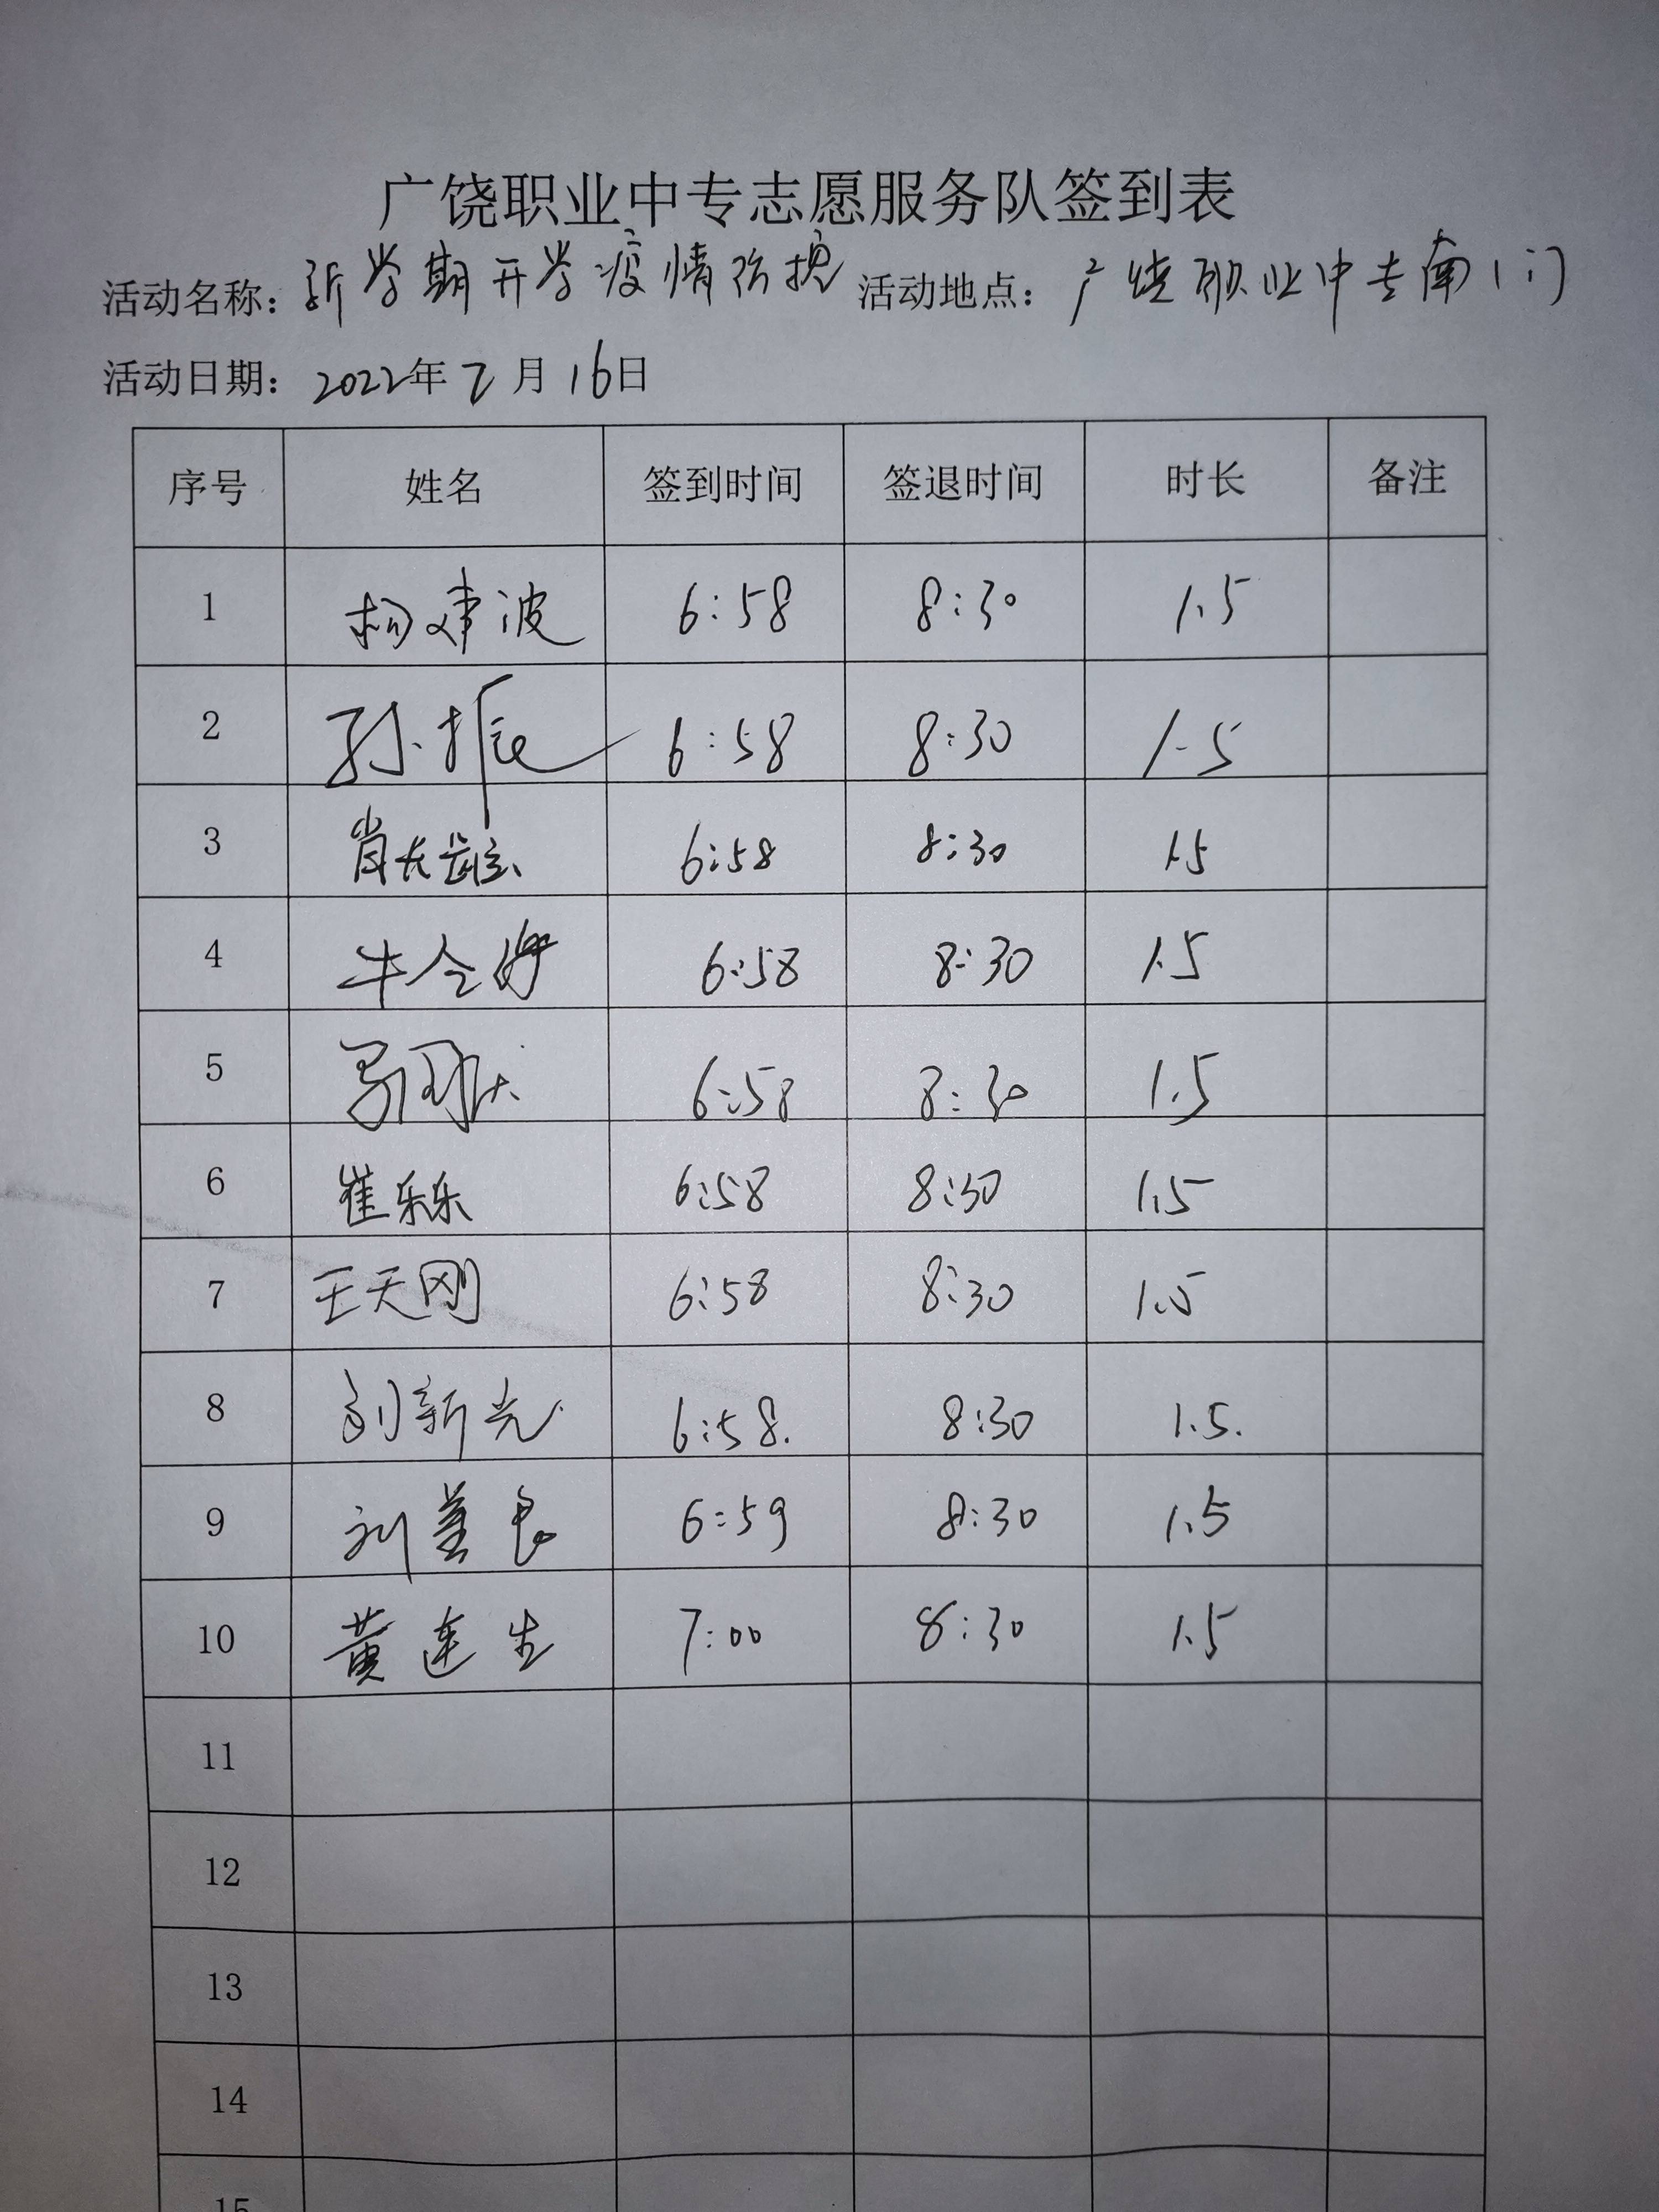 广饶职业中专志愿服务队签到表
活动名称：新学期开学疫情防控 活动地点：广饶职业中专南门
活动日期：2022年2月16日
序号 姓名 签到时间 签退时间 时长 备注
1 杨建波 6:58 8:30 1.5
2 孙振 6:58 8:30 1.5
3 肖 6:58 8:30 1.5
4 牛令 6:58 8:30 1.5
5 6:58 8:30 1.5
6 崔乐乐 6:58 8:30 1.5
7 王天刚 6:58 8:30 1.5
8 刘新光 6:58. 8:30 1.5.
9 刘善良 6:59 8:30 1.5
10 黄连生 7:00 8:30 1.5
11
12
13
14
15